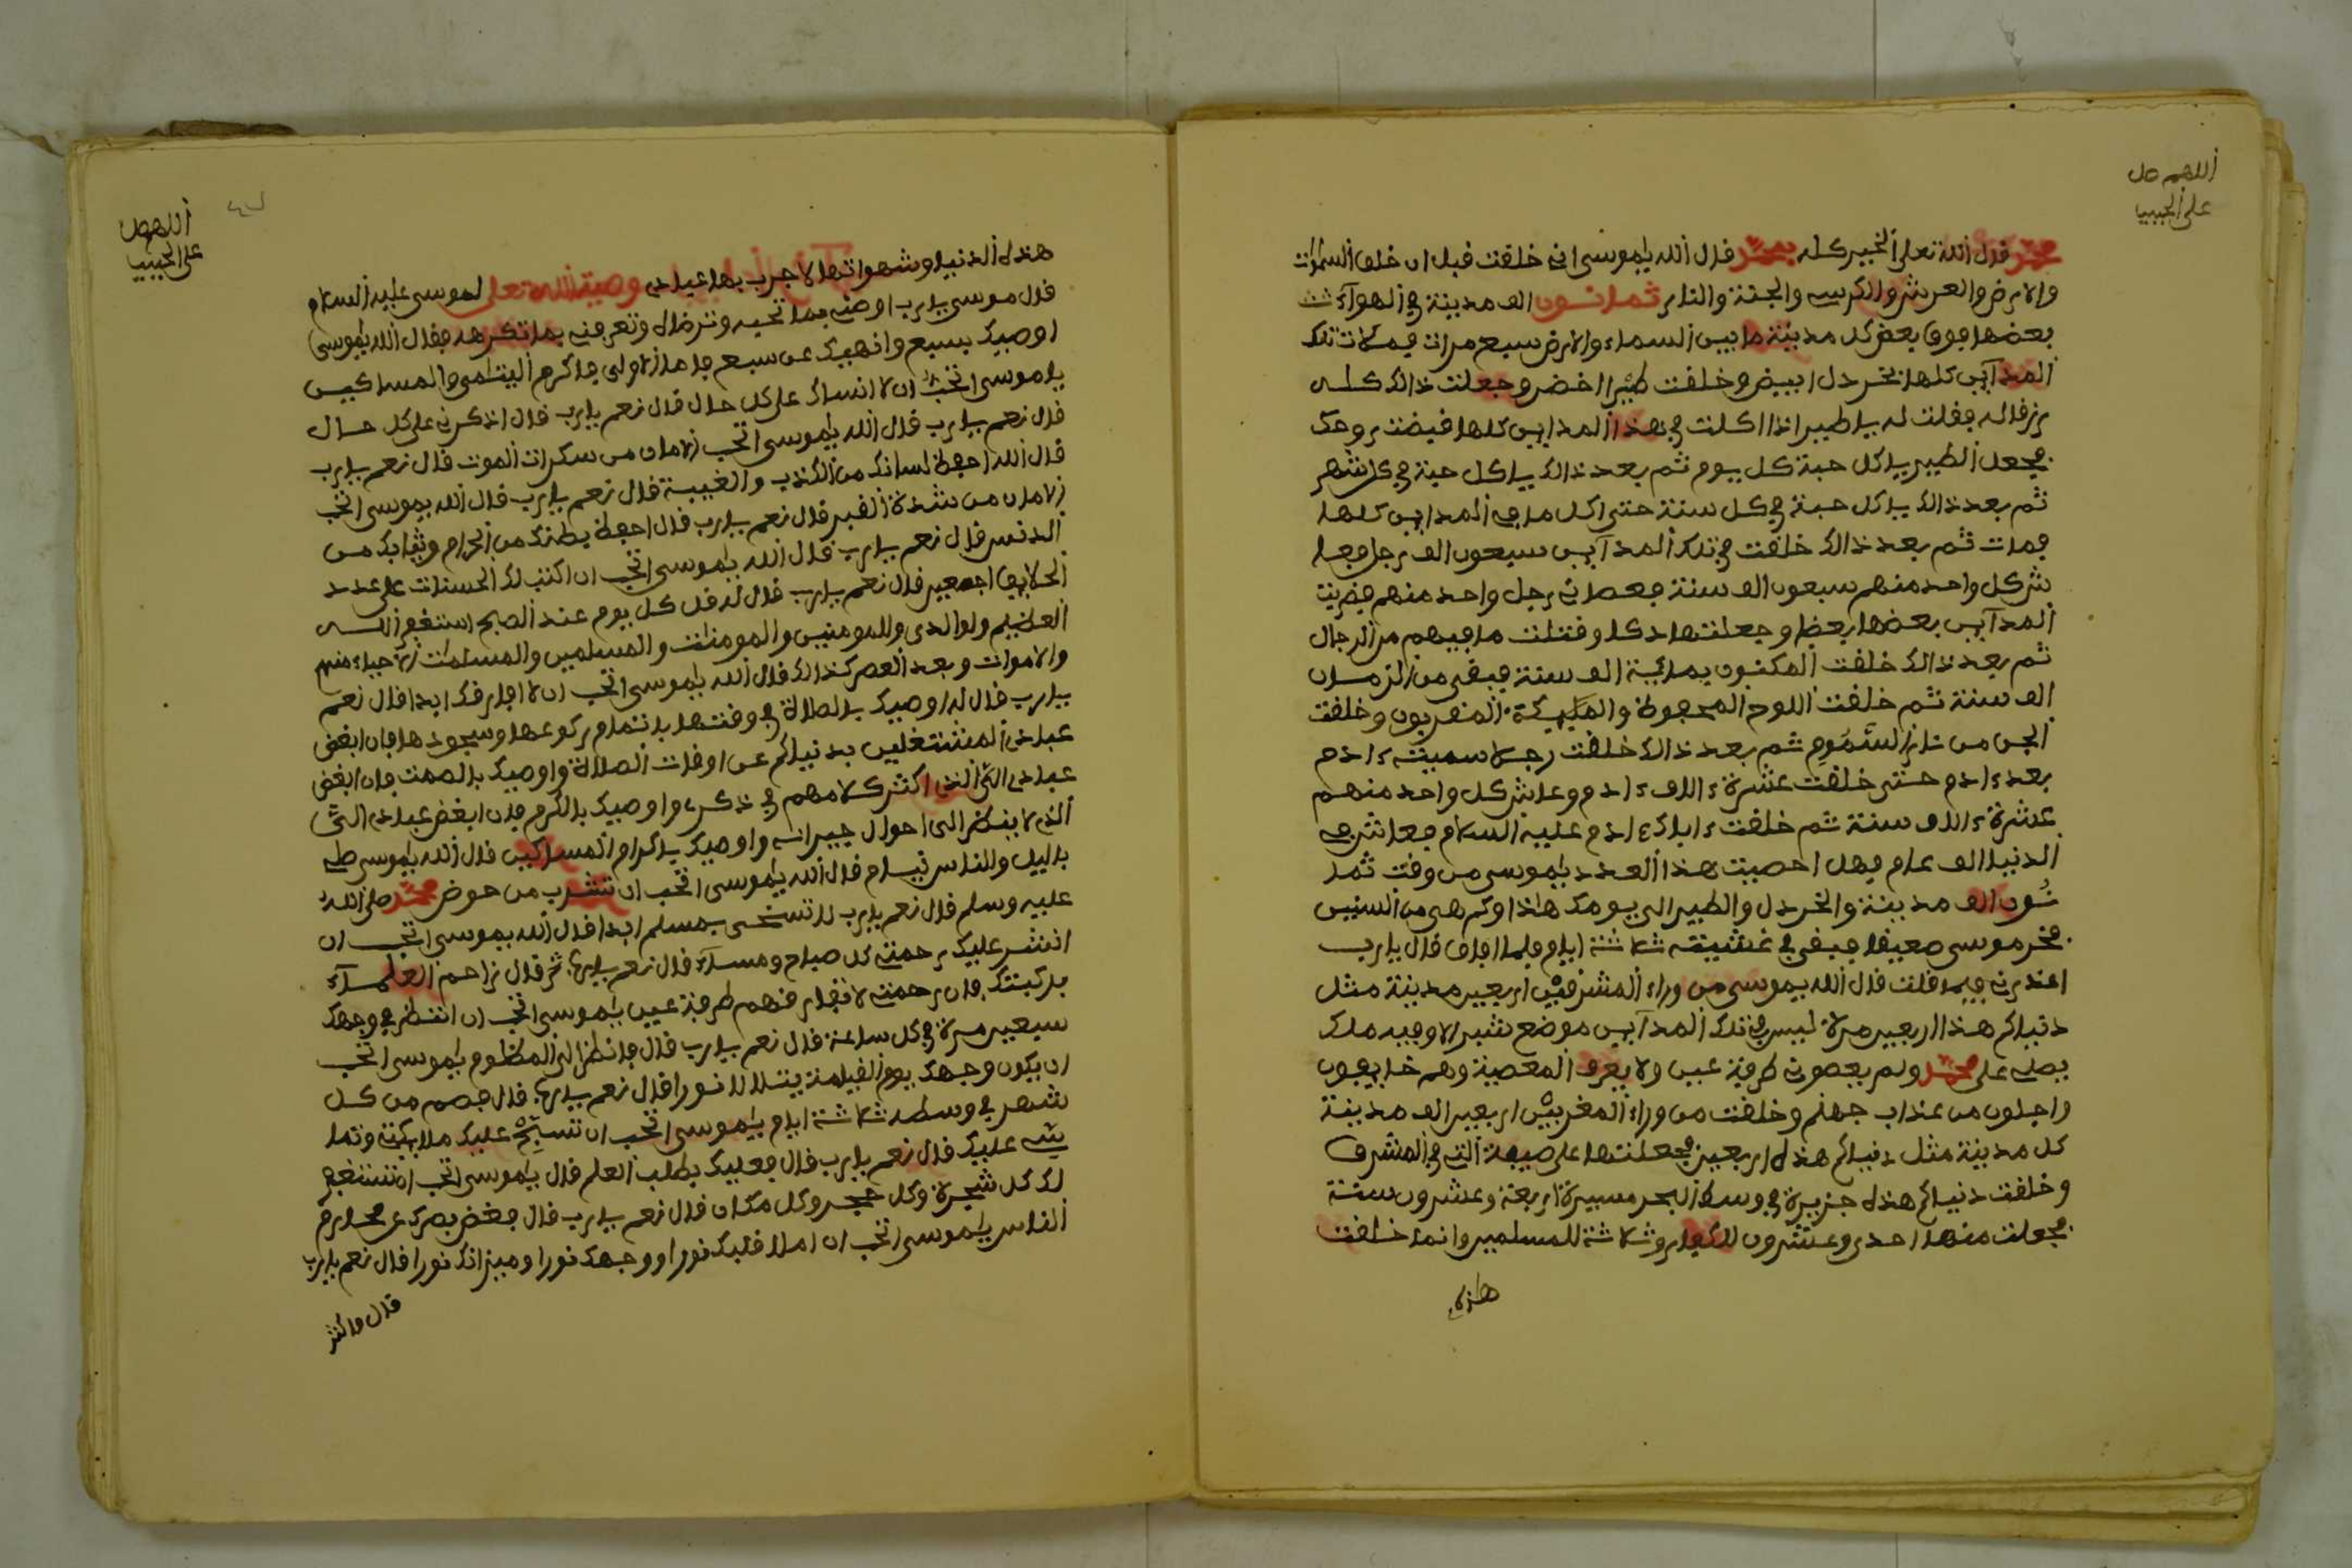 اللهم صل
على الحبيب
محمد قال الله تعلى الخير كله بمحمد قال الله يلموسى انى خلقت قبل ان خلق السموات
والارض والعرش والكرسى والجنة والنار ثمانون الف مدينة في الهوآء
بعضها فوق بعض كل مدينة ما بين السماء والارض سبع مرات فملات تلك
المدآين كلها بخردل ابيض وخلقت طيرا اخضر وجعلت ذالك كله
رزقا له فقلت له يا طير اذا اكلت في هذا المداين كلها قبضت روحك
فجعل الطير ياكل حبة كل يوم ثم بعد ذالك ياكل حبة في كل شهر
ثم بعد ذالك ياكل حبة في كل سنة حتى اكل ما في المداين كلها
فمات ثم بعد ذالك خلقت في تلك المدآين سبعون الف رجل فعا
ش كل واحد منهم سبعون الف سنة فعصانى رجل واحد منهم فضربت
المدآين بعضها بعضا وجعلتها دكا وقتلت ما فيهم من الرجال
ثم بعد ذالك خلقت المكنون بماىة الف سنة فبقى من الزمان
الف سنة ثم خلقت اللوح المحفوظ والمليكة المقربون وخلقت
الجن من نار السموم ثم بعد ذالك خلقت رجلا سميته ءادم
بعد ءادم حتى خلقت عشرة ءالاف ءادم وعاش كل واحد منهم
عشرة ءالاف سنة ثم خلقت اباك ءادم عليه السلام فعاش في
الدنيا الف عام فهل احصيت هذا العدد يلموسى من وقت ثما
نون الف مدينة والخردل والطير الى يومك هاذا وكم هى من السنين
فخر موسى صعيقا فبقى في غشيته ثلاثة ايام فلما افاق قال يارب
اعذرنى فيما قلت قال الله يموسى من وراء المشرقين اربعين مدينة مثل
دنياكم هذا اربعين مرة ليس في تلك المدآين موضع شبر الا وفيه ملك
يصلى على محمد ولم يعصونى طرفة عين ولا يعرف المعصية وهم خايفون
واجلون من عذاب جهنم وخلقت من وراء المغربين اربعين الف مدينة
كل مدينة مثل دنياكم هذه اربعين فجعلتها على صيفة التى في المشرق
وخلقت دنياكم هذه جزيرة في وسط البحر مسيرة اربعة وعشرون سنة
فجعلت منها احدى وعشرون للكفار وثلاثة للمسلمين وانما خلقت
هاذه
اللهم صل
على الحبيب
هذه الدنيا وشهواتها لاجرب بها عبادى وصية الله تعلى لموسى عليه السلام
قال موسى يارب اوصنى بما تحبه وترضاه وتعرفنى بما تكرهه فقال الله يلموسى
اوصيك بسبع وانهيك عن سبع فاما الاولى فاكرم اليتامى والمساكين
يلموسى اتحب ان لا انساك على كل حال قال نعم يارب قال اذكرنى على كل حال
قال نعم يارب قال الله يلموسى اتحب الامان من سكرات الموت قال نعم يارب
قال الله احفظ لسانك من الكذب والغيبة قال نعم يارب قال الله يموسى اتحب
الامان من شدة القبر قال نعم يارب قال احفظ بطنك من الحرام وثيابك من
الدنس قال نعم يارب قال الله يلموسى اتحب ان اكتب لك الحسنات على عدد
الخلايق اجمعين قال نعم يارب قال له قل كل يوم عند الصبح استغفر الله
العظيم ولوالدى وللمومنين والمومنات والمسلمين والمسلمات الاحياء منهم
والاموات وبعد العصر كذالك قال الله يلموسى اتحب ان لا افارقك ابدا قال نعم
يارب قال له اوصيك بالصلاة في وقتها باتمام ركوعها وسجودها فان ابغض
عبادى المشتغلين بدنياكم عن اوقات الصلاة واوصيك بالصمت فان ابغض
عبادى الى الذى اكثر كلامهم في ذكرى واوصيك بالكرم فان ابغض عبادى الى
الذى لا ينظر الى احوال جيرانه واوصيك باكرام المساكين قال الله يلموسى صل
باليل والناس نيام قال الله يلموسى اتحب ان تشرب من حوض محمد صلى الله
عليه وسلم قال نعم يارب لا تسخى بمسلم ابدا قال الله يموسى اتحب ان
انشر عليك رحمتى كل صباح ومساء قال نعم يارب ثم قال زاحم العلمآء
بركبتك فان رحمتى لا تفارقهم طرفة عين يلموسى اتحب ان انظر في وجهك
سبعين مرة في كل ساعة قال نعم يارب قال فانظر الى المظلوم يلموسى اتحب
ان يكون وجهك يوم القيامة يتلالا نورا قال نعم يارب قال فصم من كل
شهر في وسطه ثلاثة ايام يلموسى اتحب ان تسبح عليك ملايكتى وتما
شى عليك قال نعم يارب قال فعليك بطلب العلم قال يلموسى اتحب ان تستغفر
لك كل شجرة وكل حجر وكل مكان قال نعم يارب قال فغض بصرك عن محارم
الناس يلموسى اتحب ان املا قلبك نورا ووجهك نورا وميزانك نورا قال نعم يارب
قال فاكثر